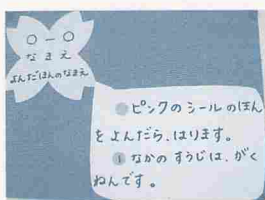 ○-○
なまえ
よんだほんのなまえ
ピンクのシールのほん
をよんだら、はります。
① なかのすうじは、がく
ねんです。